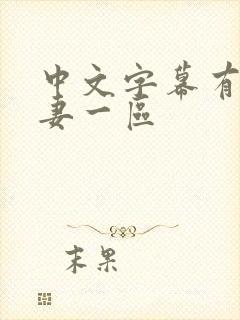 中文字幕有
妻一區
末果